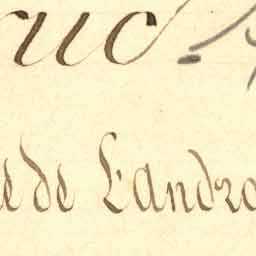 ruc.
e de Landro